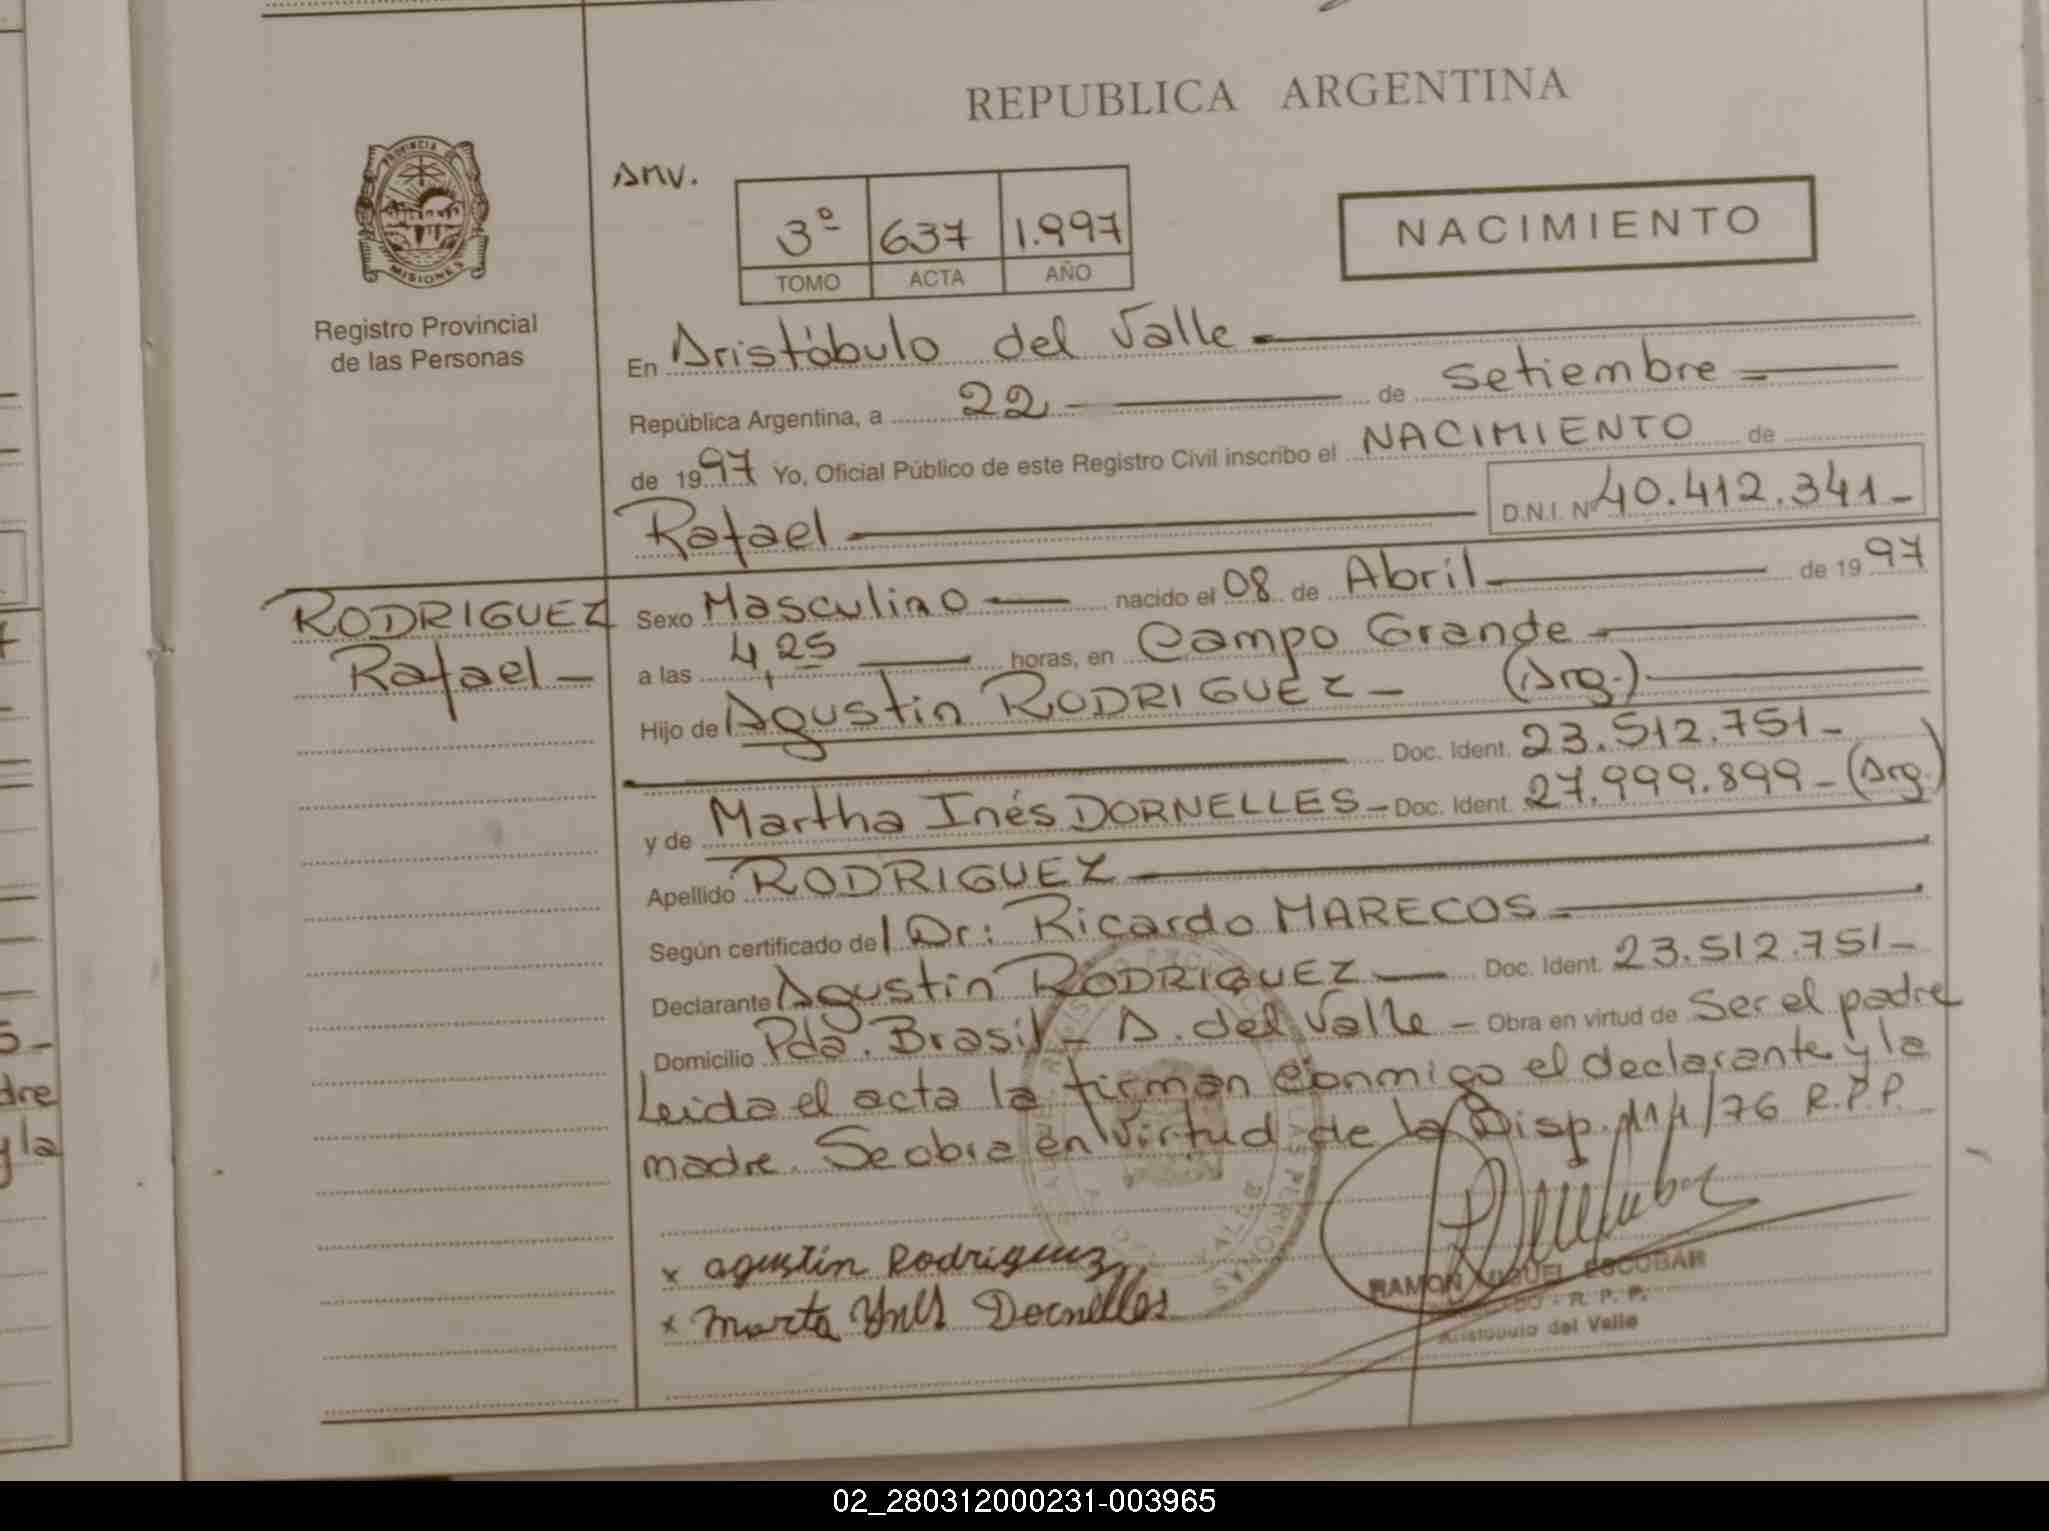 REPUBLICA ARGENTINA
PROVINCIA DE
MISIONES
Registro Provincial
de las Personas
Anv.
3º 637 1.997
TOMO ACTA AÑO
NACIMIENTO
En Aristóbulo del Valle
República Argentina, a 22 de Setiembre
de 1997 Yo, Oficial Público de este Registro Civil inscribo el NACIMIENTO de
Rafael D.N.I. Nº 40.412.341-
RODRIGUEZ
Rafael -
Sexo Masculino nacido el 08 de Abril de 1997
a las 4,25 horas, en Campo Grande
Hijo de Agustin RODRIGUEZ - (Arg.)
Doc. Ident. 23.512.751-
y de Martha Inés DORNELLES - Doc. Ident. 27.999.899 - (Arg.)
Apellido RODRIGUEZ
Según certificado de Dr: Ricardo MARECOS
Declarante Agustin RODRIGUEZ Doc. Ident. 23.512.751-
Domicilio Pda. Brasil - A. del Valle - Obra en virtud de Ser el padre
Leida el acta la firman conmigo el declarante y la
madre. Se obra en virtud de la Disp. /76 R.P.P.
x agustin Rodriguez
x marta Ynes Dornelles
RAMON MIGUEL ESCOBAR
R. P. P.
Aristobulo del Valle
dre
y la
02_280312000231-003965